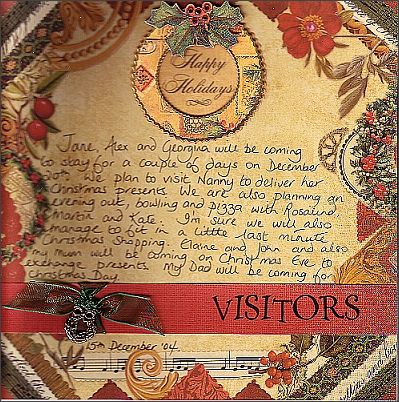 Happy
Holidays
Jane, Alex and Georgina will be coming
to stay for a couple of days on December
20th. We plan to visit Nanny to deliver her
Christmas presents. We are also planning an
evening out, bowling and pizza with Rosalind,
Martin and Kate. I'm sure we will also
manage to fit in a little last minute
Christmas shopping. Elaine and John and also
my Mum will be coming on Christmas Eve to
exchange presents. My Dad will be coming for
Christmas Day.
VISITORS
15th December '04